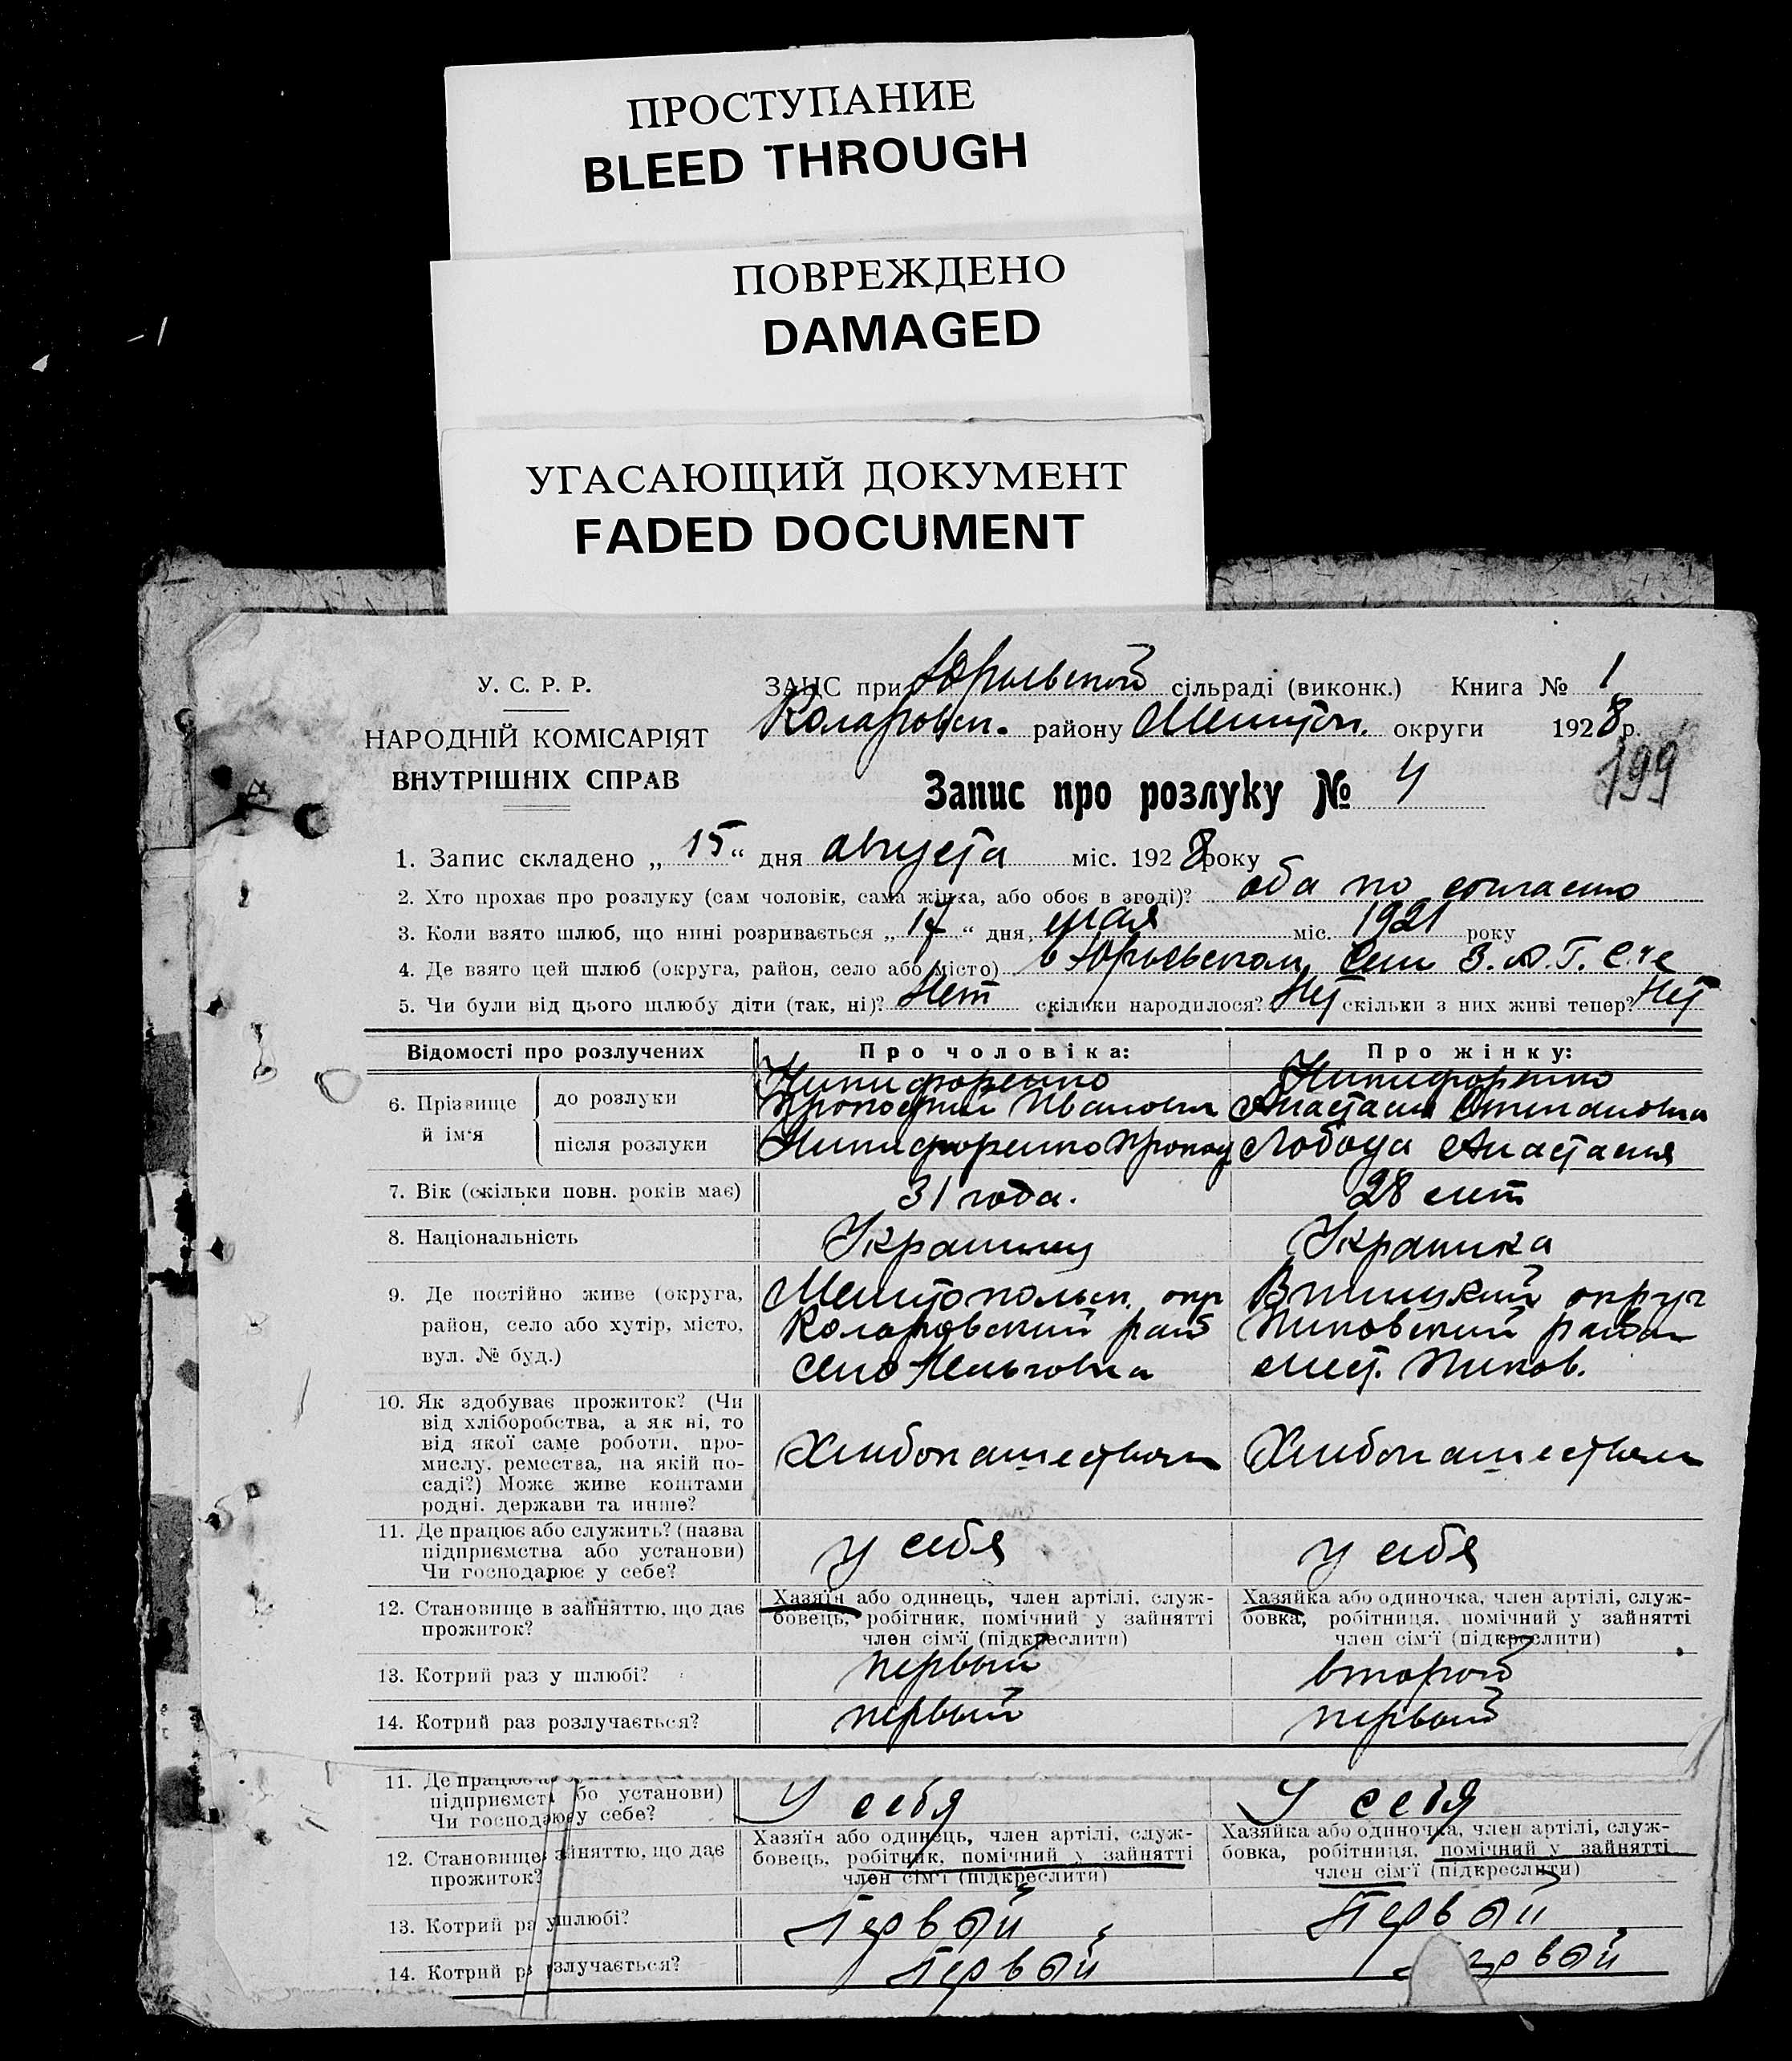 ПРОСТУПАНИЕ
BLEED THROUGH
ПОВРЕЖДЕНО
DAMAGED
УГАСАЮЩИЙ ДОКУМЕНТ
FADED DOCUMENT
У. С. Р. Р.
НАРОДНІЙ КОМІСАРІЯТ
ВНУТРІШНІХ СПРАВ
ЗАЦС при Юрьевской сільраді (виконк.) Книга № 1
Коларовск. району Мелитоп. округи 1928 р.
199
Запис про розлуку № 4
1. Запис складено „ 15 “ дня августа міс. 1928 року
2. Хто прохає про розлуку (сам чоловік, сама жінка, або обоє в згоді)? оба по согласию
3. Коли взято шлюб, що нині розривається „ 17 “ дня мая міс. 1921 року
4. Де взято цей шлюб (округа, район, село або місто) в Юрьевском З.А.Г.С.че
5. Чи були від цього шлюбу діти (так, ні)? Нет скільки народилося? Нет скільки з них живі тепер? Нет
Відомості про розлучених Про чоловіка: Про жінку:
6. Прізвище й ім‘я
до розлуки
Никифоренко
Иванович
Никифоренко
Анастасия Степановна
після розлуки
Никифоренко
Лобода Анастасия
7. Вік (скільки повн. років має) 31 года. 28 лет
8. Національність Украинец Украинка
9. Де постійно живе (округа, район, село або хутір, місто, вул. № буд.)
Мелитопольск. окр
Коларовский райо
Село Нельговка
Винницкий округ
Пиковский район
мест. Пиков.
10. Як здобуває прожиток? (Чи
від хліборобства, а як ні, то
від якої саме роботи, про-
мислу, ремества, на якій по-
саді?) Може живе коштами
родні, держави та инше?
Хлибопашеством
Хлибопашеством
11. Де працює або служить? (назва
підприємства або установи)
Чи господарює у себе?
у себя
у себя
12. Становище в зайняттю, що дає
прожиток?
Хазяїн або одинець, член артілі, служ-
бовець, робітник, помічний у зайнятті
член сім‘ї (підкреслити)
Хазяйка або одиночка, член артілі, служ-
бовка, робітниця, помічний у зайнятті
член сім‘ї (підкреслити)
13. Котрий раз у шлюбі? первый второй
14. Котрий раз розлучається? первый первый
11. Де працює
підприємст бо установи)
Чи господарює у себе?
У себя
У себя
12. Становище зайняттю, що дає
прожиток?
Хазяїн або одинець, член артілі, служ-
бовець, робітник, помічний у зайнятті
член сім‘ї (підкреслити)
Хазяйка або одиночка, член артілі, служ-
бовка, робітниця, помічний у зайнятті
член сім‘ї (підкреслити)
13. Котрий ра у шлюбі? Первый Первый
14. Котрий р злучається? Первый рвый